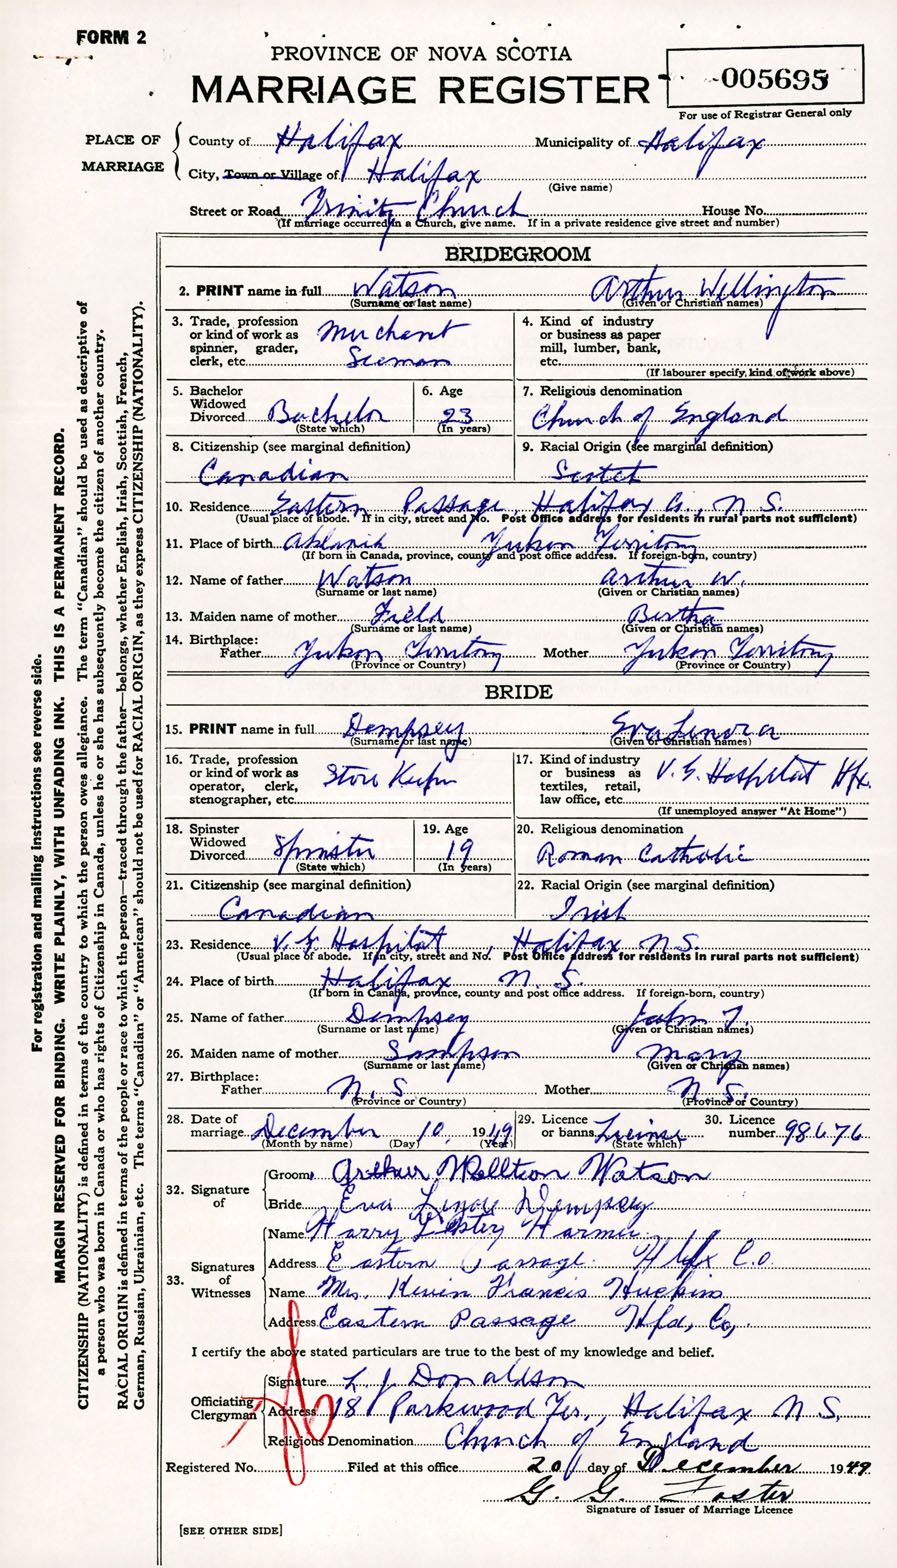 FORM 2
PROVINCE OF NOVA SCOTIA
MARRIAGE REGISTER
005695
For use of Registrar General only
PLACE OF MARRIAGE
County of Halifax Municipality of Halifax
City, Town or Village of Halifax
(Give name)
Street or Road Trinity Church House No.
(If marriage occurred in a Church, give name. If in a private residence give street and number)
BRIDEGROOM
2. PRINT name in full Watson Arthur Wellington
(Surname or last name) (Given or Christian names)
3. Trade, profession or kind of work as spinner, grader, clerk, etc. Merchant Seaman
4. Kind of industry or business as paper mill, lumber, bank, etc.
(If labourer specify, kind of work above)
5. Bachelor Widowed Divorced Bachelor
(State which)
6. Age 23
(In years)
7. Religious denomination
Church of England
8. Citizenship (see marginal definition)
Canadian
9. Racial Origin (see marginal definition)
Scotch
10. Residence Eastern Passage, Halifax Co., N.S.
(Usual place of abode. If in city, street and No. Post Office address for residents in rural parts not sufficient)
11. Place of birth Yukon Territory
(If born in Canada, province, county and post office address. If foreign-born, country)
12. Name of father Watson Arthur W.
(Surname or last name) (Given or Christian names)
13. Maiden name of mother Field Bertha
(Surname or last name) (Given or Christian names)
14. Birthplace:
Father Yukon Territory Mother Yukon Territory
(Province or Country) (Province or Country)
BRIDE
15. PRINT name in full Dempsey Eva Lenora
(Surname or last name) (Given or Christian names)
16. Trade, profession or kind of work as operator, clerk, stenographer, etc. Store Keeper
17. Kind of industry or business as textiles, retail, law office, etc. V.G. Hospital Hfx.
(If unemployed answer "At Home")
18. Spinster Widowed Divorced Spinster
(State which)
19. Age 19
(In years)
20. Religious denomination
Roman Catholic
21. Citizenship (see marginal definition)
Canadian
22. Racial Origin (see marginal definition)
Irish
23. Residence V.G. Hospital, Halifax N.S.
(Usual place of abode. If in city, street and No. Post Office address for residents in rural parts not sufficient)
24. Place of birth Halifax N.S.
(If born in Canada, province, county and post office address. If foreign-born, country)
25. Name of father Dempsey John T.
(Surname or last name) (Given or Christian names)
26. Maiden name of mother Sampson Mary
(Surname or last name) (Given or Christian names)
27. Birthplace:
Father N.S. Mother N.S.
(Province or Country) (Province or Country)
28. Date of marriage December 10, 1949
(Month by name) (Day) (Year)
29. Licence or banns License
(State which)
30. Licence number 98676
32. Signature of
Groom Arthur Watson
Bride Eva Dempsey
33. Signatures of Witnesses
Name Harry
Address Eastern Passage. Hlfx Co.
Name Mrs. Kevin Francis
Address Eastern Passage Hfx, Co,
I certify the above stated particulars are true to the best of my knowledge and belief.
Officiating Clergyman
Signature L J Donaldson
Address 18 Parkwood Ter., Halifax N S.
Religious Denomination Church of England
Registered No. Filed at this office 20 day of December 1949
G. G. Foster
Signature of Issuer of Marriage Licence
[SEE OTHER SIDE]
For registration and mailing instructions see reverse side.
MARGIN RESERVED FOR BINDING. WRITE PLAINLY, WITH UNFADING INK. THIS IS A PERMANENT RECORD.
CITIZENSHIP (NATIONALITY) is defined in terms of the country to which the person owes allegiance. The term "Canadian" should be used as descriptive of
a person who was born in Canada or who has rights of Citizenship in Canada, unless he or she has subsequently become the citizen of another country.
RACIAL ORIGIN is defined in terms of the people or race to which the person—traced through the father—belongs, whether English, Irish, Scottish, French,
German, Russian, Ukrainian, etc. The terms "Canadian" or "American" should not be used for RACIAL ORIGIN, as they express CITIZENSHIP (NATIONALITY).